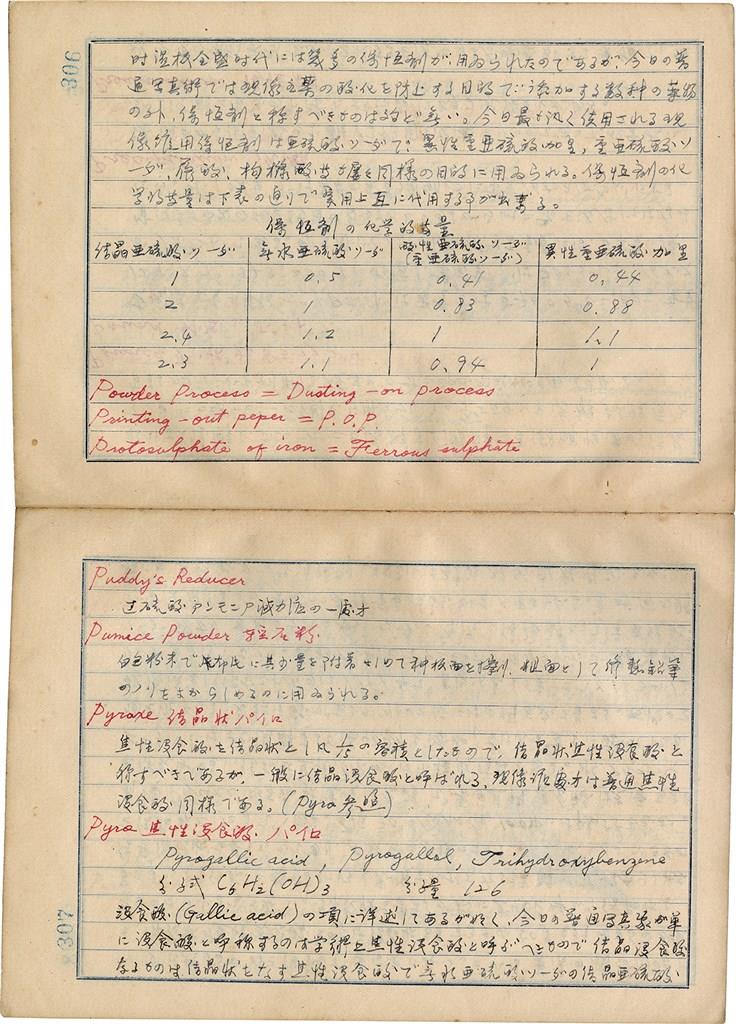 306
時湿板全盛時代には幾多の保恒剤が用ゐられたのであるが、今日の普
通写真術では現像主薬の酸化を防止する目的で添加する数種の薬物
の外、保恒剤と称すべきものは殆ど無い。今日最も汎く使用される現
像液用保恒剤は亜硫酸ソーダで、異性重亜硫酸加里、重亜硫酸ソ
ーダ、蓚酸、枸櫞酸等も屡々同様の目的に用ゐられる。保恒剤の化
学的当量は下表の通りで実用上互に代用する事が出来る。
保恒剤の化学的当量
結晶亜硫酸ソーダ 無水亜硫酸ソーダ 酸性亜硫酸ソーダ (重亜硫酸ソーダ) 異性重亜硫酸加里
1 0.5 0.41 0.44
2 1 0.83 0.88
2.4 1.2 1 1.1
2.3 1.1 0.94 1
Powder Process = Dusting-on process
Printing-out peper = P.O.P.
Protosulphate of iron = Ferrous sulphate
Puddy's Reducer
過硫酸アンモニア減力液の一処方
Pumice Powder 軽石粉
白色粉末で 其少量を附着せしめて種板面を擦り、粗面として修整鉛筆
のノリをよからしめるのに用ゐられる。
Pyraxe 結晶状パイロ
焦性没食酸を結晶状とし凡1/5の容積としたもので、結晶状焦性没食酸と
称すべきであるが、一般に結晶没食酸と呼ばれる、現像液処方は普通焦性
没食酸同様である。(Pyro参照)
Pyro 焦性没食酸、パイロ
Pyrogallic acid, Pyrogallol, Trihydroxybenzene
分子式 C6H2(OH)3 分子量 126
没食酸(Gallic acid)の項に詳述してあるが如く、今日の普通写真家が単
に没食酸と呼称するのは学術上焦性没食酸と呼ぶべきもので結晶没食酸
なるものは結晶状をなす焦性没食酸で無水亜硫酸ソーダの結晶亜硫酸
307